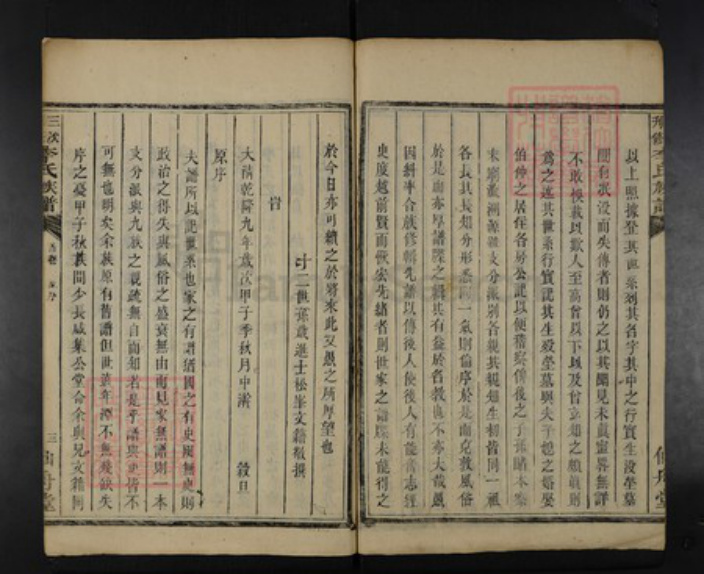 以上照據登其世系列其名字其中之行實生没塋墓
間有湮没而失傳者則仍之以其聞見未真靈界無詳
不敢妄裁以欺人至高曾以下以及曾立知之
為之述其世系行實記其生殁塋墓與夫子媳之婚娶
伯仲之居住各房公記以便稽察傳後之子孫睹本
末 派別各親其親知生初皆同一祖
各長其長知分形悉同一氣則倫序於是而克敦風俗
於是而亦厚譜牒之輯其有益於名教也不亦大哉愚
因糾率合族修輯先譜以傳後人使後人有能善志經
史度越前賢而恢宏先緒者則世家之譜牒未嘗得之
於今日亦可續之於將來此又愚之所厚望也
十二世孫歲進士松峯文籍敬撰
旹
大清乾隆九年歲次甲子季秋月中澣 穀旦
原序
夫譜所以記世系也家之有譜猶國之有史國無史則
政治之得失與風俗之盛衰無由而見家無譜則一本
支分派與九族之親疏無自而知者是乎譜與史皆不
可無也明矣余族原有昔譜但世遠年湮不無殘缺失
序之憂甲子秋族間少長咸集公堂命余與兄文籍同
三修李氏族譜
仙丹堂